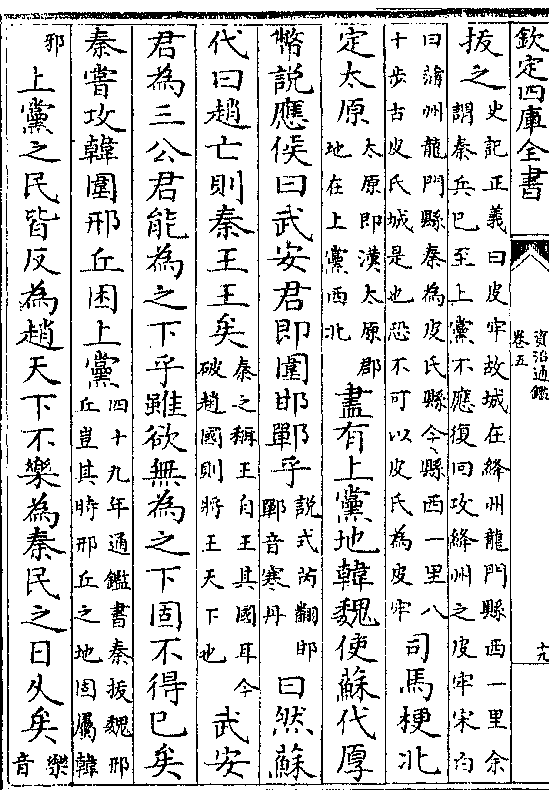 欽定四庫全書
資治通鑑
卷五
十九
拔之史記正義曰皮牢故城在絳州龍門縣西一里余
謂秦兵已至上黨不應復回攻絳州之皮牢宋白
曰蒲州龍門縣秦為皮氏縣今縣西一里八
十步古皮氏城是也恐不可以皮氏為皮牢司馬梗北
定太原太原即漢太原郡
地在上黨西北盡有上黨地韓魏使蘇代厚
幣說應侯曰武安君即圍邯鄲乎說式芮翻邯
鄲音寒丹曰然蘇
代曰趙亡則秦王王矣秦之稱王自王其國耳今
破趙國則將王天下也武安
君為三公君能為之下乎雖欲無為之下固不得已矣
秦嘗攻韓圍邢丘困上黨四十九年通鑑書秦拔魏邢
丘豈其時邢丘之地固屬韓
邪上黨之民皆反為趙天下不樂為秦民之日久矣樂
音